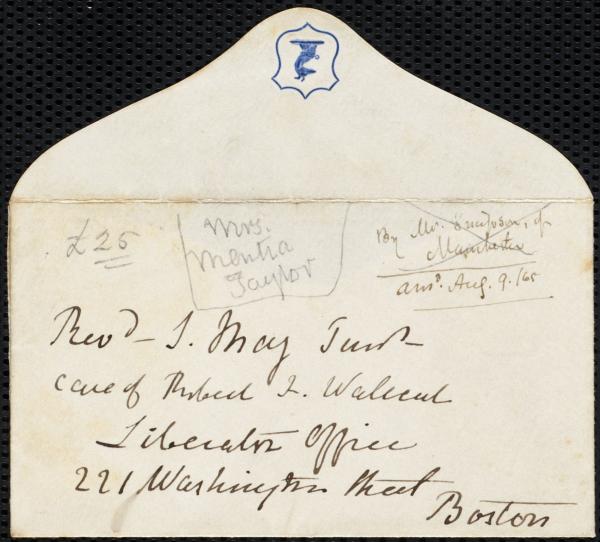 £25
Mrs.
Mentia
Taylor
By Mr. Simpson, of
Manchester
ansd. Aug. 9. /65
Revd. S. May Junr.
care of Robert F. Walcut
Liberator Office
221 Washington Street
Boston